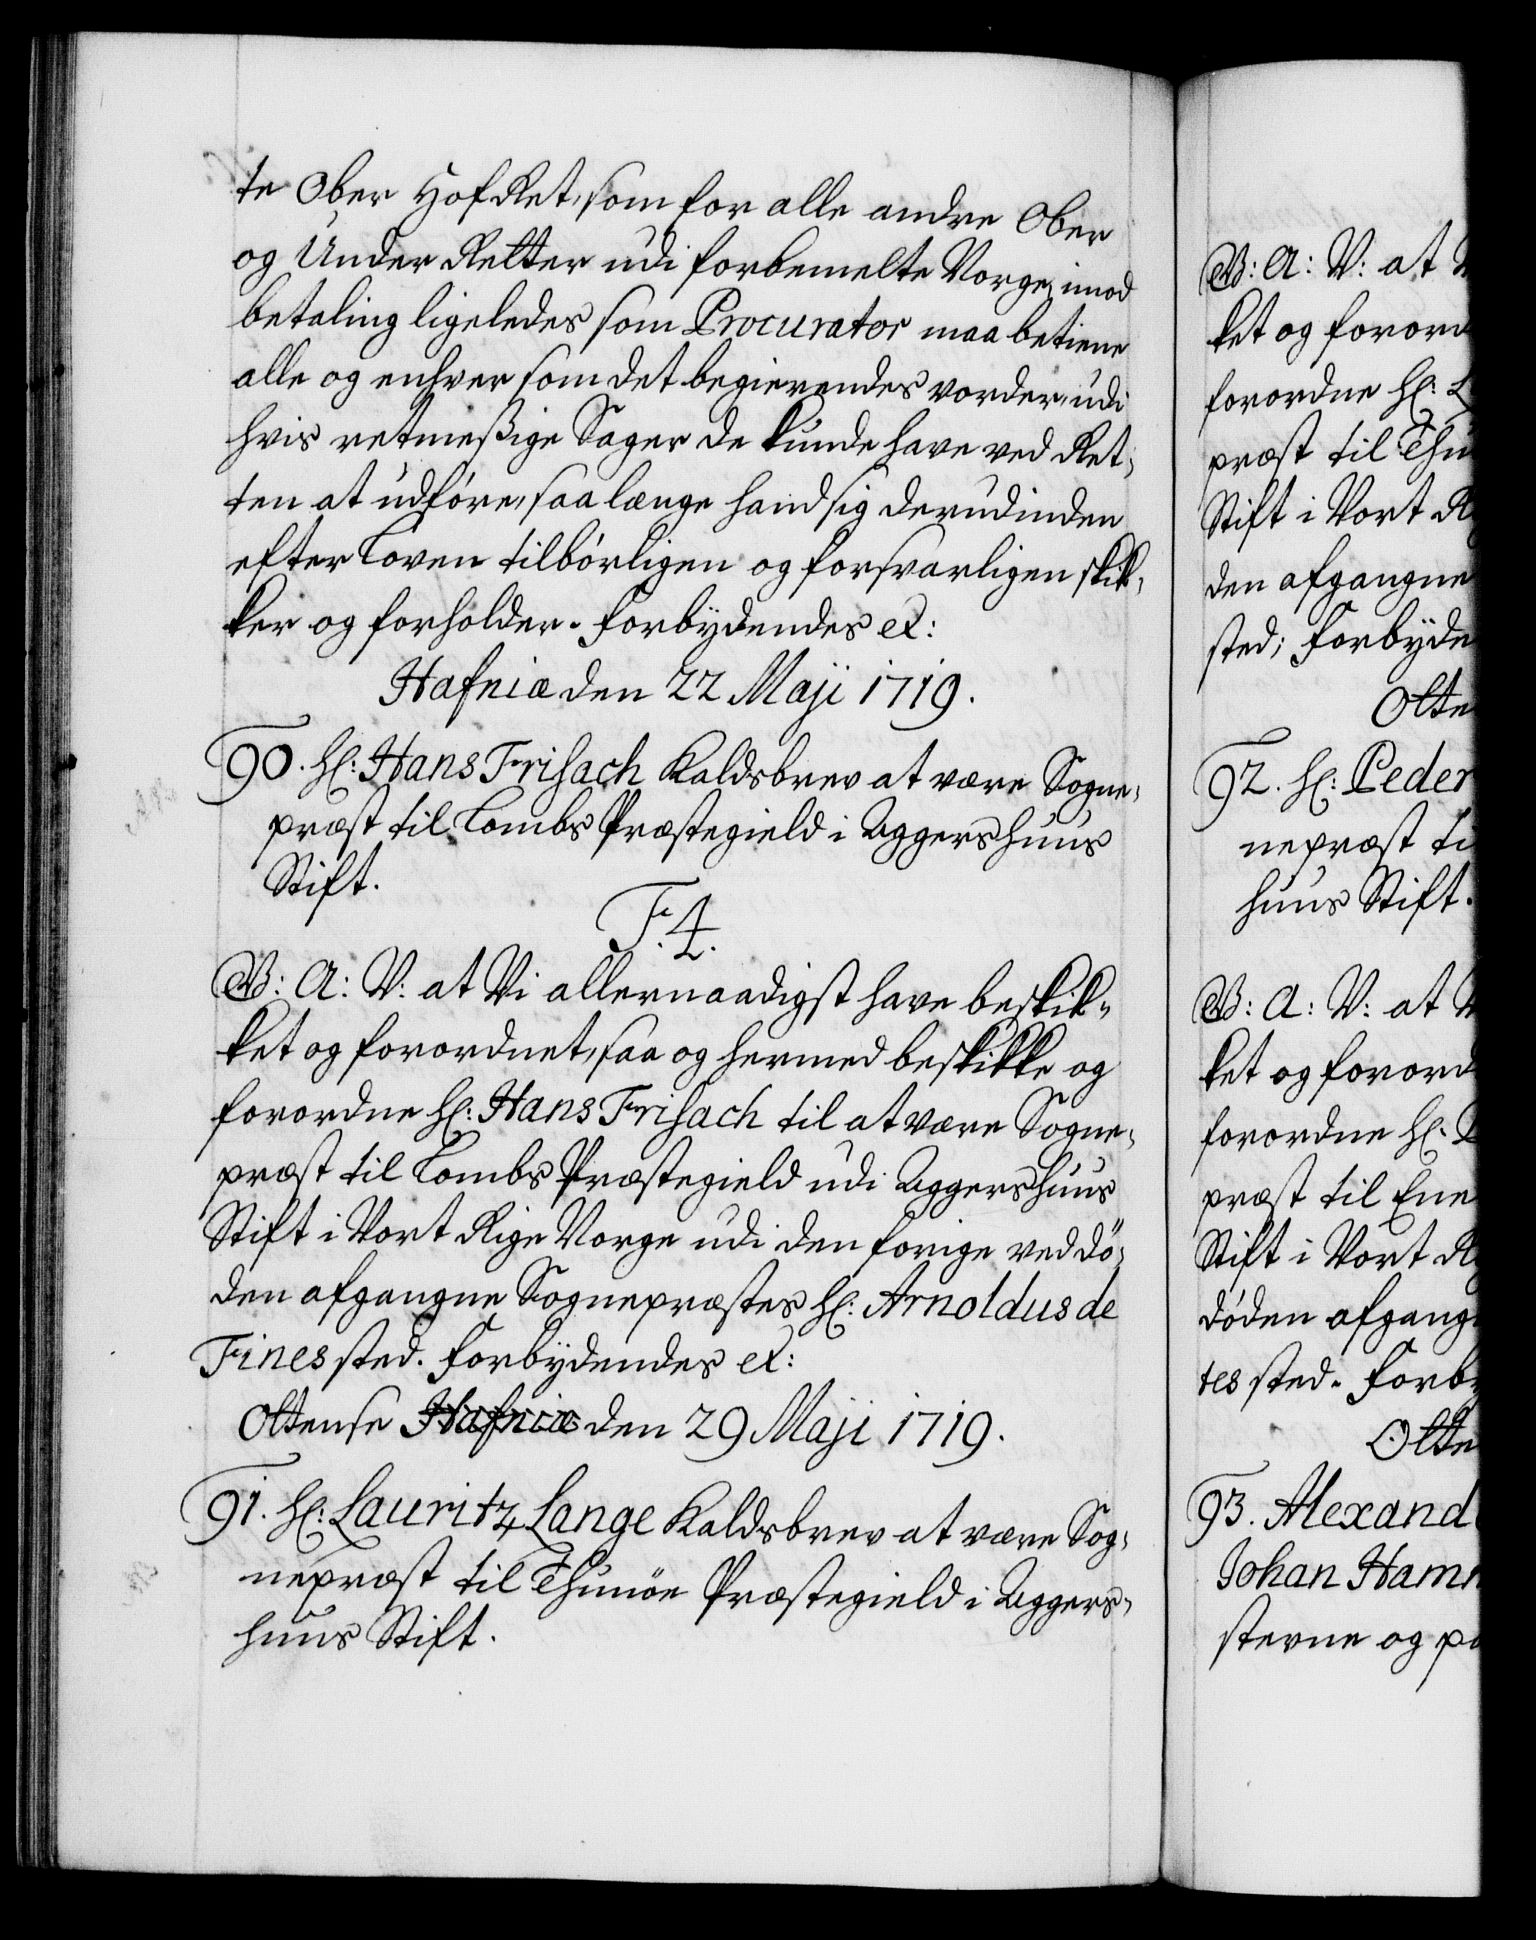 te Ober Hof Ret, som for alle andre Ober
og Under Retter udi forbemelte Norge, imod
betaling ligeledes som Procurator maa betiene
alle og enhver som det begierendes vorder, udi
hvis retmeßige Sager de kunde have ved Ret-
ten at udføre, saa længe hand sig derudinden
efter Loven tilbørligen og forsvarligen skik-
ker og forholder. Forbydendes etc:
Hafniæ den 22 Maji 1719.
90. Hr: Hans Frisach Kaldsbrev at være Sogne-
præst til Lombs Præstegield i Aggershuus
Stift.
F. 4.
G. A: V: at Vi allernaadigst have beskik-
ket og forordnet, saa og hermed beskikke og
forordne Hr: Hans Frisach til at være Sogne-
præst til Lombs Præstegield udi Aggershuus
Stift i Vort Rige Norge udi den forige ved dö-
den afgangne Sognepræstes Hr: Arnoldus de
Fines sted. Forbydendes etc:
Ottense Hafniæ den 29 Maji 1719.
91. Hr: Lauritz Lange Kaldsbrev at være Sog-
nepræst til Thunöe Præstegield i Aggers-
huus Stift.
G: A: V: at
ket og forord
forordne Hr: L
præst til Thu
Stift i Vort R
den afgangne
sted; Forbyde
Otte
92. Hr: Peder
nepræst ti
huus Stift.
G: A: V: at
ket og forord
forordne Hr:
præst til Ene
Stift i Vort R
döden afgang
tes sted. Forby
Otte
93. Alexand
Johan Ham
sterne og pa